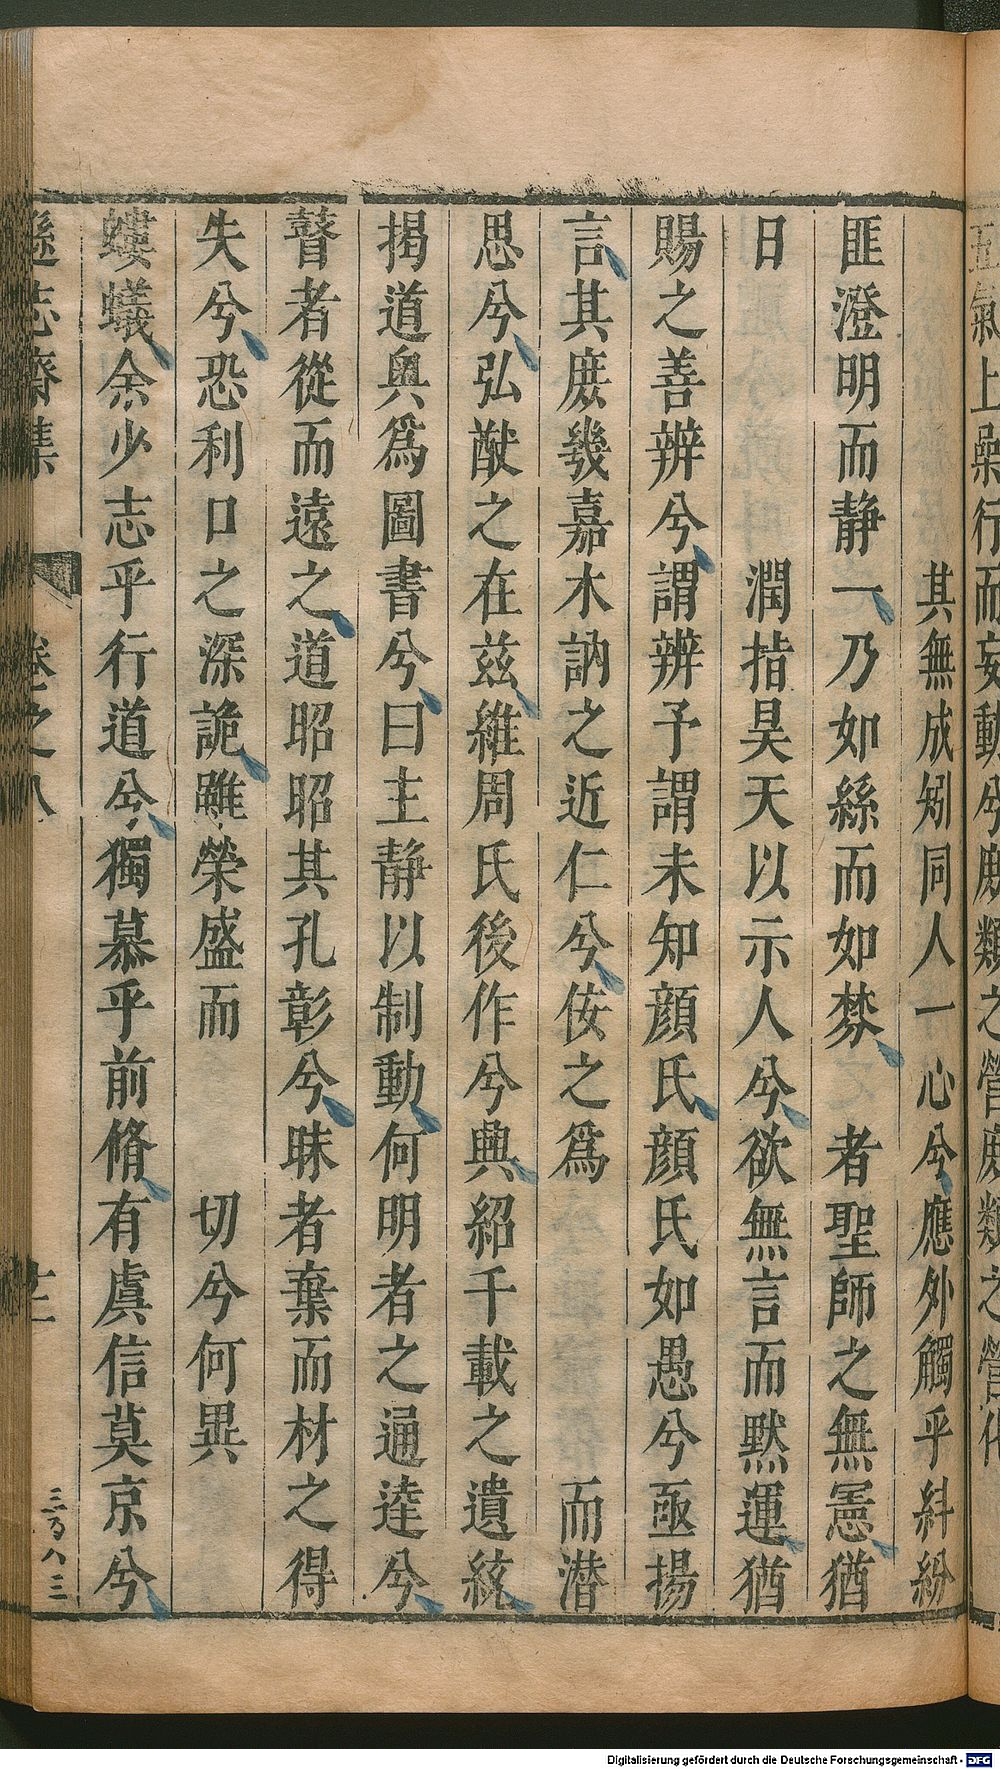 五氣上躁行而妄動兮庶類之營庶類之營化
其無成矧同人一心兮應外觸乎糾紛
匪澄明而靜一乃如絲而如棼 者聖師之無恚猶
日 潤指昊天以示人兮欲無言而默運猶
賜之善辨兮謂辨予謂未知顏氏顏氏如愚兮亟揚
言其庶幾嘉木訥之近仁兮侫之為 而潜
思兮弘猷之在茲維周氏後作兮與紹千載之遺統
揭道奥爲圖書兮曰主靜以制動何明者之通達兮
瞽者從而遠之道昭昭其孔彰兮昧者棄而材之得
失兮恐利口之深詭雖榮盛而 切兮何異
螻蟻余少志乎行道兮獨慕乎前脩有虞信莫京兮
遜志齋集 卷之八 十二
三百八三
Digitalisierung gefördert durch die Deutsche Forschungsgemeinschaft - DFG